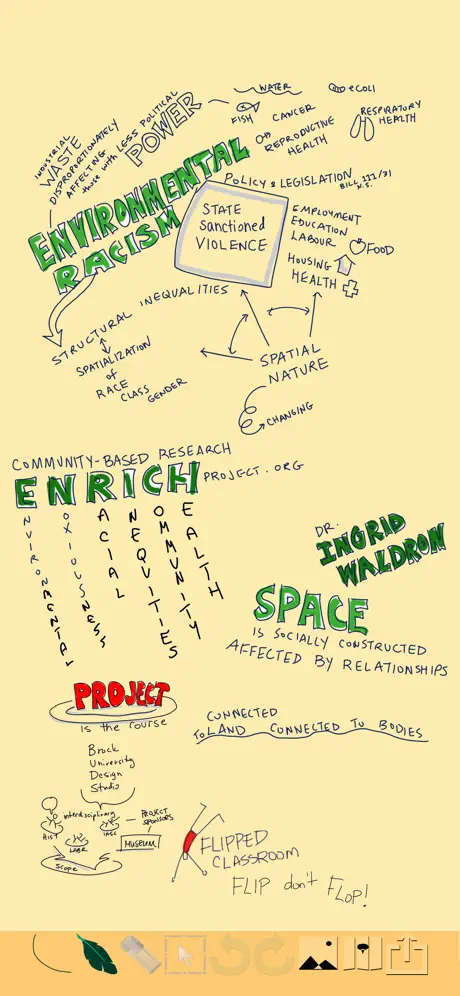 INDUSTRIAL
WASTE
DISPROPORTIONATELY
AFFECTING
those with LESS POLITICAL
POWER
WATER
ecoli
FISH
CANCER
REPRODUCTIVE
HEALTH
RESPIRATORY
HEALTH
ENVIRONMENTAL
RACISM
POLICY & LEGISLATION
BILL 111/31
N.S.
STATE
Sanctioned
VIOLENCE
EMPLOYMENT
EDUCATION
LABOUR
FOOD
HOUSING
HEALTH
STRUCTURAL INEQUALITIES
SPATIALIZATION
of
RACE
CLASS
GENDER
SPATIAL
NATURE
CHANGING
COMMUNITY-BASED RESEARCH
ENRICH PROJECT.ORG
ENVIRONMENTAL
NOXIOUSNESS
RACIAL
INEQUITIES
COMMUNITY
HEALTH
DR.
INGRID
WALDRON
SPACE
IS SOCIALLY CONSTRUCTED
AFFECTED BY RELATIONSHIPS
PROJECT
is the course
CONNECTED
To LAND CONNECTED TO BODIES
Brock
University
Design
Studio
interdisciplinary
PROJECT
SPONSORS
HIST
LABR
IASC
MUSEUM
SCOPE
FLIPPED
CLASSROOM
FLIP don't FLOP!